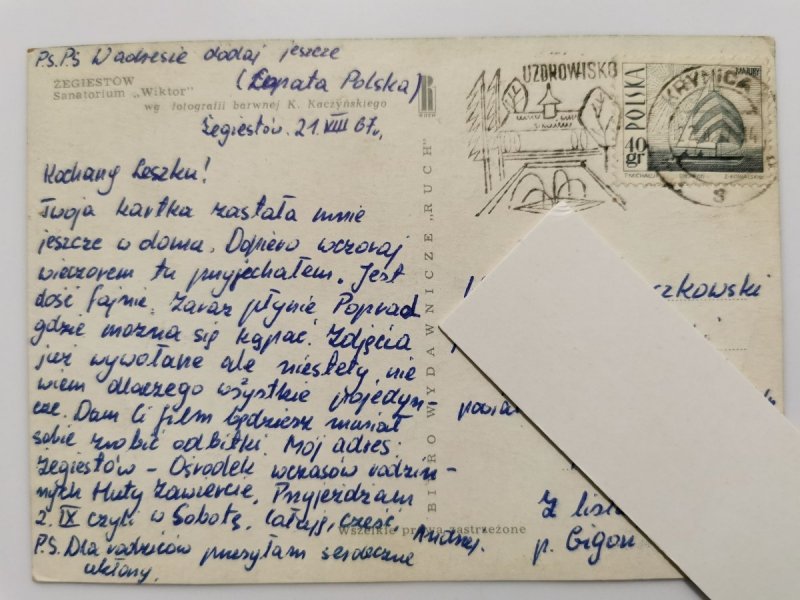 Ps.Ps W adresie dodaj jeszcze
(Łopata Polska)
ŻEGIESTÓW
Sanatorium „Wiktor"
wg fotografii barwnej K. Kaczyńskiego
Żegiestów. 21 VIII 67r.
Kochany Leszku!
Twoja kartka zastała mnie
jeszcze w domu. Dopiero wczoraj
wieczorem tu przyjechałem. Jest
dość fajnie. Zaraz płynie Poprad
gdzie można się kąpać. Zdjęcia
już wywołane ale niestety nie
wiem dlaczego wszystkie pojedyn-
cze. Dam Ci film będziesz musiał
sobie zrobić odbitki. Mój adres:
Żegiestów – Ośrodek wczasów rodzin-
nych Huty Zawiercie. Przyjeżdżam
2. IX czyli w Sobotę. Całuję, cześć, Andrzej.
P.S. Dla rodziców przesyłam serdeczne
ukłony.
BIURO WYDAWNICZE „RUCH"
Wszelkie prawa zastrzeżone
RUCH
UZDROWISKO
POLSKA
40 gr
KRYNICA
czkowski
powia
Z list
p. Gigon